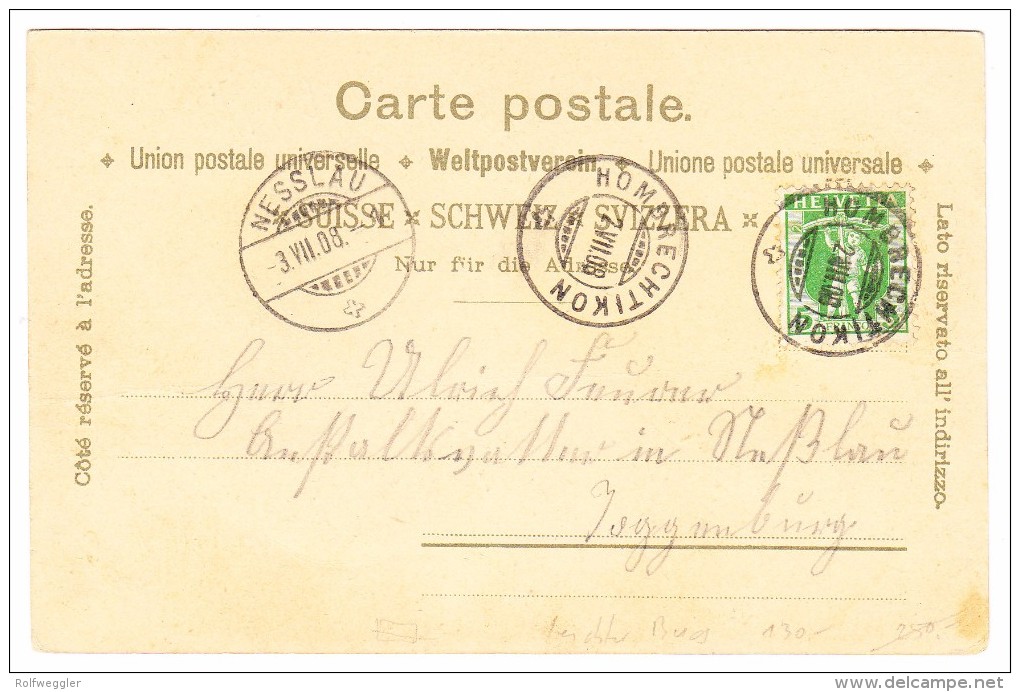 Carte postale.
Union postale universelle Weltpostverein. Unione postale universale
SUISSE × SCHWEIZ × SVIZZERA ×
Nur für die Adresse.
Côté réservé à l'adresse.
Lato riservato all' indirizzo.
NESSLAU
-3.VII.08.-
HOMBRECHTIKON
2.VII.08
HELVETIA
HOMBRECHTIKON
2.VII.08
5
Herr Ulrich
Anstaltsvatter in Neßlau
Toggenburg
leichter Bug 130.- 250.-
Rolfweggler
www.delcampe.net